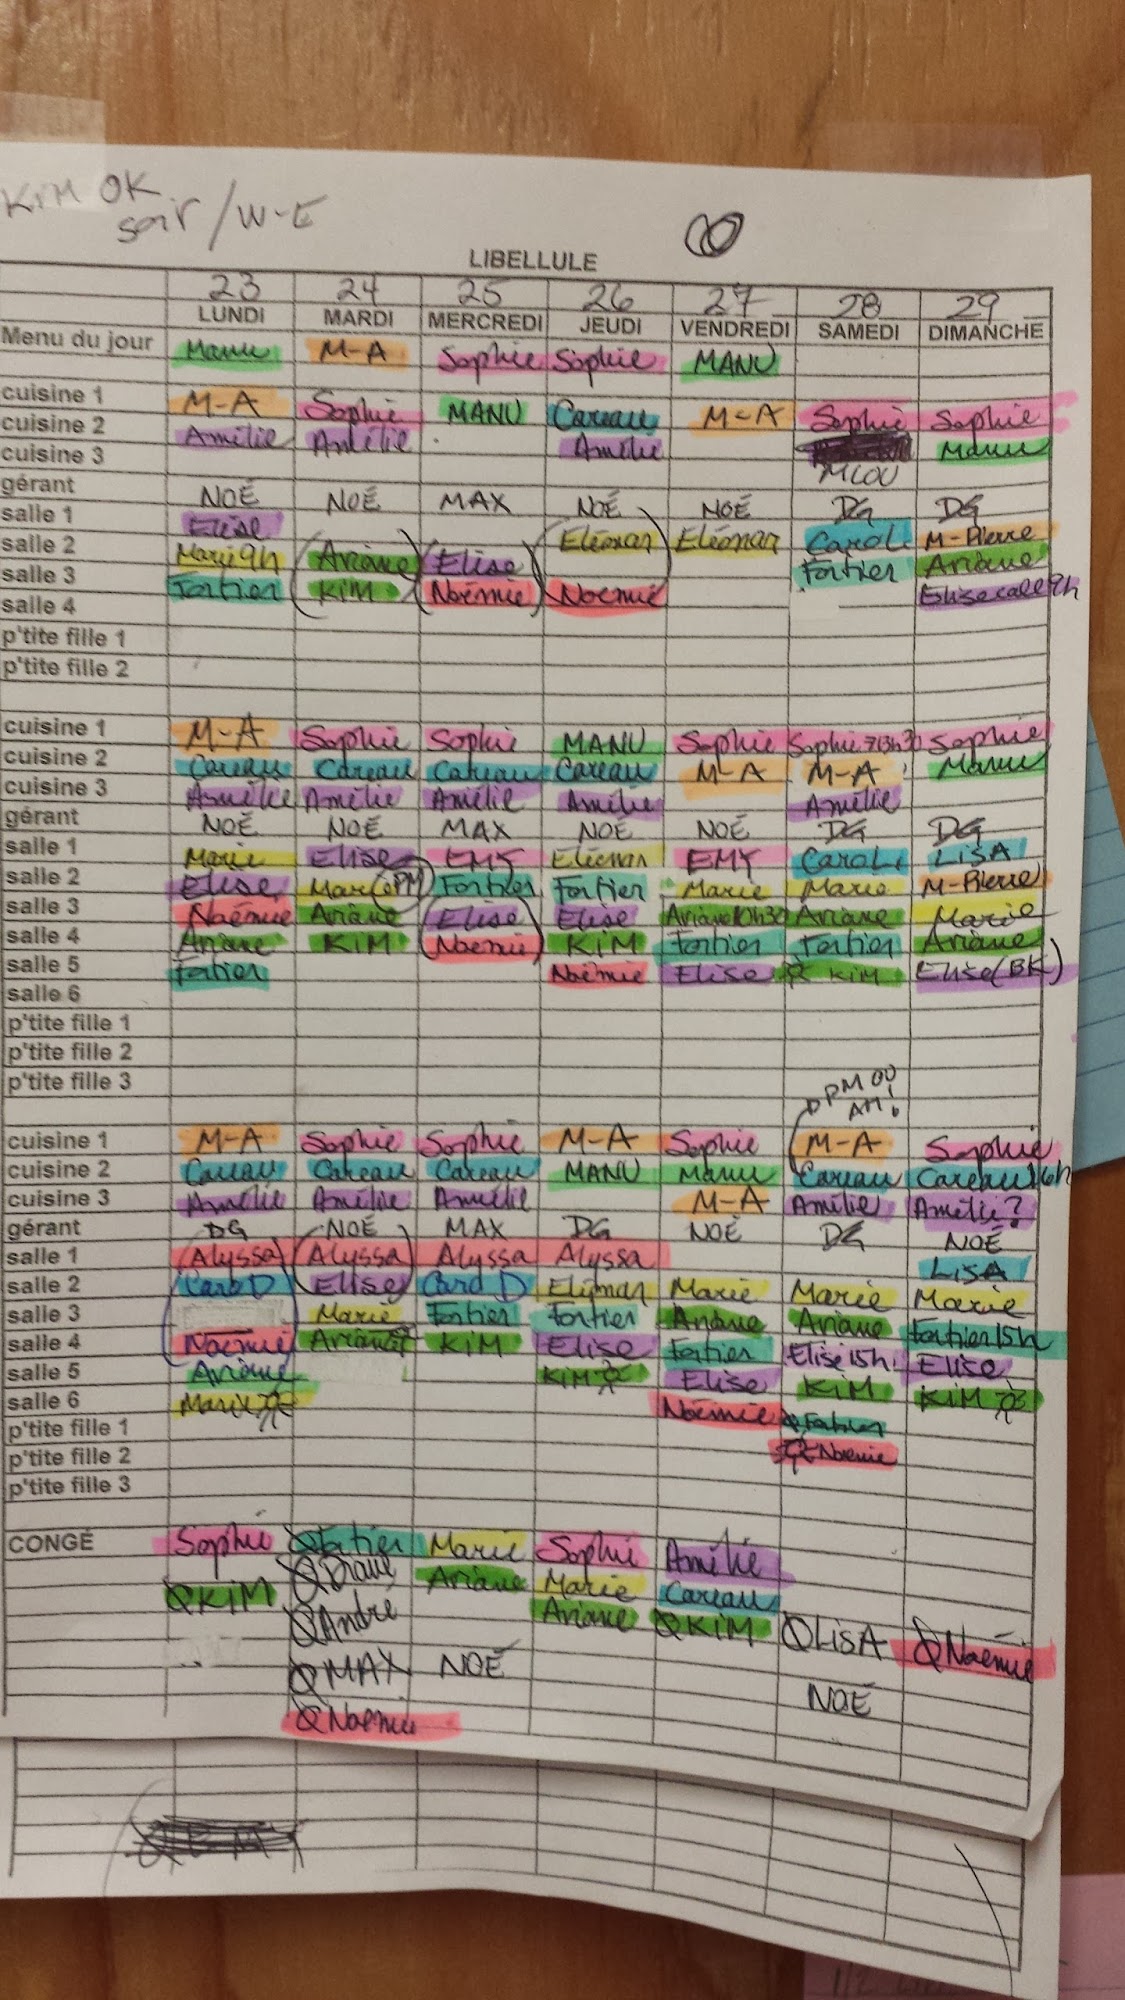 KIM OK
soir / W-E
LIBELLULE
23 24 25 26 27 28 29
LUNDI MARDI MERCREDI JEUDI VENDREDI SAMEDI DIMANCHE
Menu du jour Manu M-A Sophie Sophie MANU
cuisine 1 M-A Sophie MANU Careau M-A Sophie Sophie
cuisine 2 Amélie Amélie Amélie Manu
cuisine 3 MLOU
gérant NOÉ NOÉ MAX NOÉ NOÉ DG DG
salle 1 Elise Eléonar Eléonar CAROL M-Pierre
salle 2 Marie 9h Ariane Elise Fortier Ariane
salle 3 Fortier KIM Noémie Noemie Elise call 9h
salle 4
p'tite fille 1
p'tite fille 2
cuisine 1 M-A Sophie Sophie MANU Sophie Sophie Sophie
cuisine 2 Careau Careau Careau Careau M-A M-A Manu
cuisine 3 Amélie Amélie Amélie Amélie Amélie
gérant NOÉ NOÉ MAX NOÉ NOÉ DG DG
salle 1 Marie Elise EMY Eléonar EMY CAROL LISA
salle 2 Elise Marie (PM) Fortier Fortier Marie Marie M-Pierre
salle 3 Noémie Ariane Elise Elise Ariane 10h30 Ariane Marie
salle 4 Ariane KIM Noemie KIM Fortier Fortier Ariane
salle 5 Fortier Noémie Elise KIM Elise (BK)
salle 6
p'tite fille 1
p'tite fille 2
p'tite fille 3
PM OU
AM!
cuisine 1 M-A Sophie Sophie M-A Sophie M-A Sophie
cuisine 2 Careau Careau Careau MANU Manu Careau Careau 16h
cuisine 3 Amélie Amélie Amélie M-A Amélie Amélie?
gérant DG NOÉ MAX DG NOÉ DG NOÉ
salle 1 Alyssa Alyssa Alyssa Alyssa LISA
salle 2 Caro D Elise Caro D Marie Marie Marie
salle 3 Marie Fortier Fortier Ariane Ariane Fortier 15h
salle 4 Noemie Ariane KIM Elise Fortier Elise 15h Elise
salle 5 Ariane KIM Elise KIM KIM
salle 6 Marie Noémie Fortier
p'tite fille 1 Noemie
p'tite fille 2
p'tite fille 3
CONGÉ Sophie Fortier Marie Sophie Amélie
KIM Ariane Marie Careau
André Ariane KIM LISA Noemie
MAX NOÉ NOÉ
Noemie